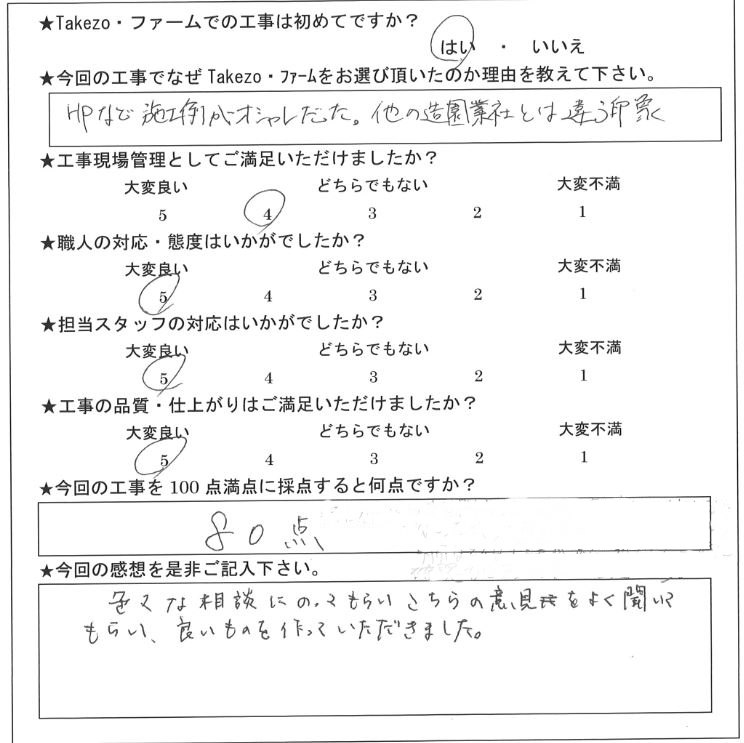 ★Takezo・ファームでの工事は初めてですか？
はい ・ いいえ
★今回の工事でなぜ Takezo・ﾌｧｰﾑをお選び頂いたのか理由を教えて下さい。
HPなど施工例がオシャレだった。他の造園業社とは違う印象
★工事現場管理としてご満足いただけましたか？
大変良い どちらでもない 大変不満
5 4 3 2 1
★職人の対応・態度はいかがでしたか？
大変良い どちらでもない 大変不満
5 4 3 2 1
★担当スタッフの対応はいかがでしたか？
大変良い どちらでもない 大変不満
5 4 3 2 1
★工事の品質・仕上がりはご満足いただけましたか？
大変良い どちらでもない 大変不満
5 4 3 2 1
★今回の工事を 100 点満点に採点すると何点ですか？
80点
★今回の感想を是非ご記入下さい。
色々な相談にのってもらいこちらの意見をよく聞いて
もらい、良いものを作っていただきました。